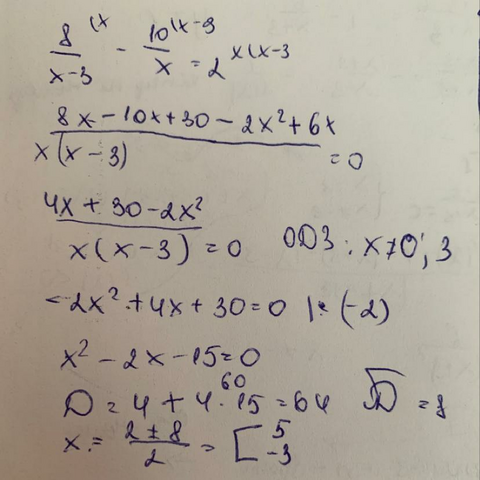 8/(x-3) (x - 10/x (x-3 = 2 x(x-3
(8x-10x+30-2x²+6x)/(x(x-3)) =0
(4x+30-2x²)/(x(x-3)) =0 ОДЗ: x≠0; 3
-2x²+4x+30=0 |: (-2)
x²-2x-15=0
60
D=4+4·15=64 √D=8
x=(2±8)/2=[5
-3